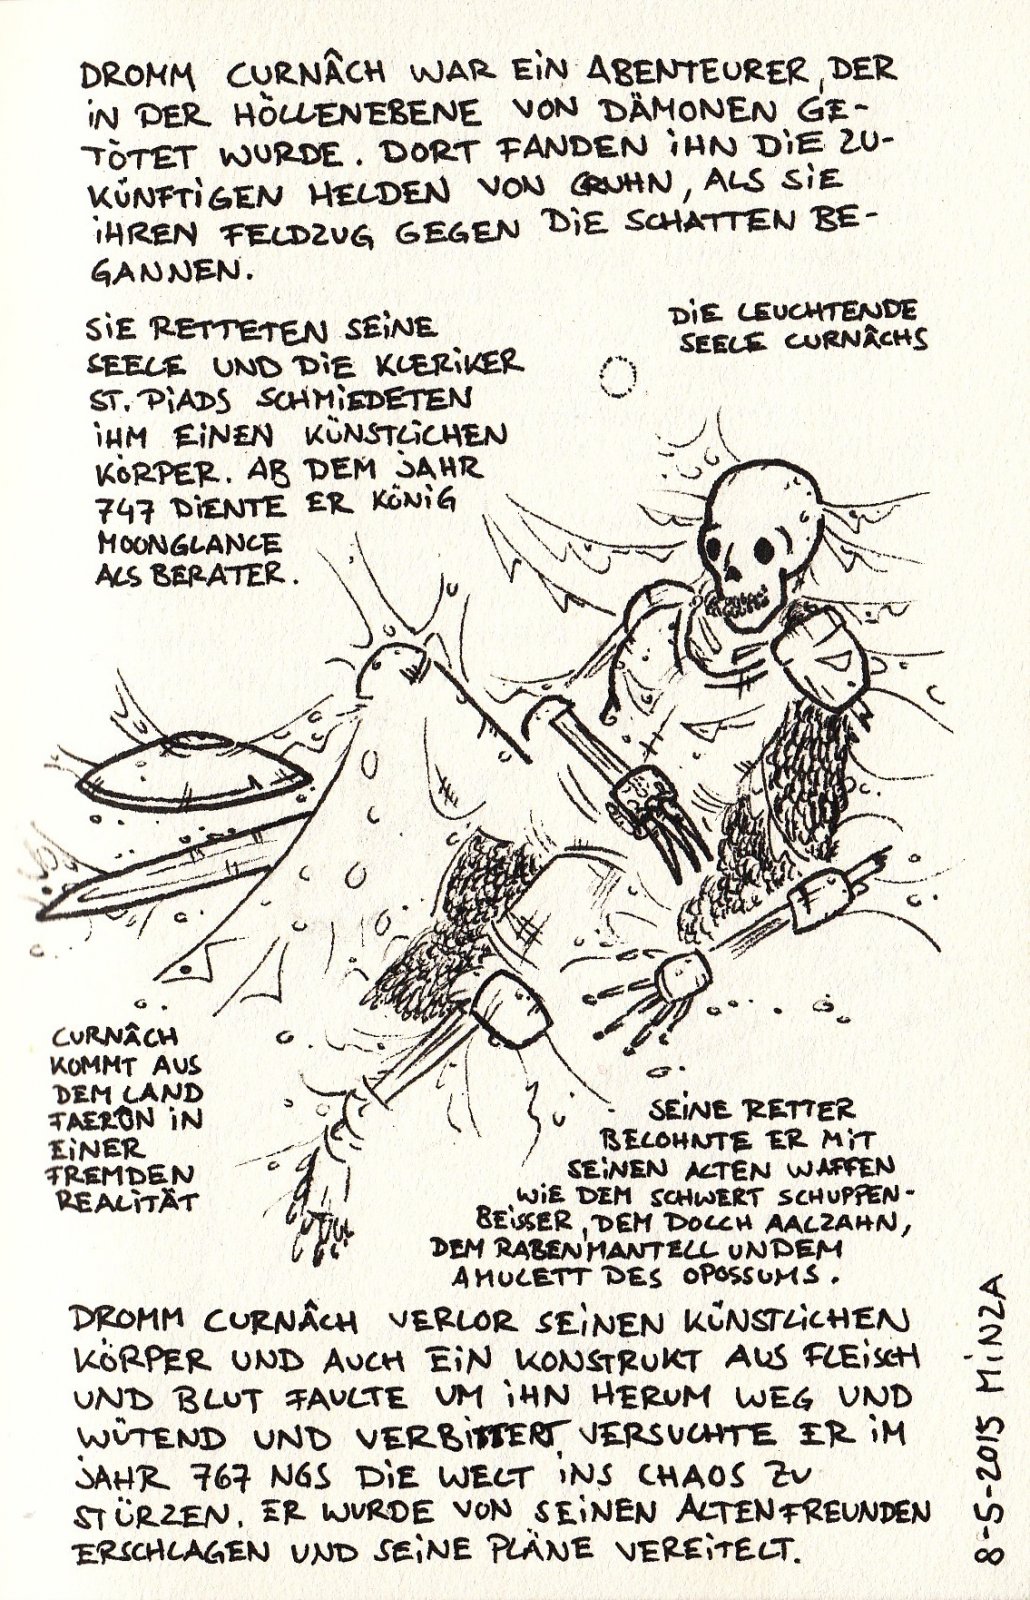 DROMM CURNÂCH WAR EIN ABENTEURER, DER
IN DER HÖLLENEBENE VON DÄMONEN GE-
TÖTET WURDE. DORT FANDEN IHN DIE ZU-
KÜNFTIGEN HELDEN VON GRUHN, ALS SIE
IHREN FELDZUG GEGEN DIE SCHATTEN BE-
GANNEN.
SIE RETTETEN SEINE
SEELE UND DIE KLERIKER
ST. PIADS SCHMIEDETEN
IHM EINEN KÜNSTLICHEN
KÖRPER. AB DEM JAHR
747 DIENTE ER KÖNIG
MOONGLANCE
ALS BERATER.
DIE LEUCHTENDE
SEELE CURNÂCHS
CURNÂCH
KOMMT AUS
DEM LAND
FAERÛN IN
EINER
FREMDEN
REALITÄT
SEINE RETTER
BELOHNTE ER MIT
SEINEN ALTEN WAFFEN
WIE DEM SCHWERT SCHUPPEN-
BEISSER, DEM DOLCH AALZAHN,
DEM RABENMANTELL UNDEM
AMULETT DES OPOSSUMS.
DROMM CURNÂCH VERLOR SEINEN KÜNSTLICHEN
KÖRPER UND AUCH EIN KONSTRUKT AUS FLEISCH
UND BLUT FAULTE UM IHN HERUM WEG UND
WÜTEND UND VERBITTERT VERSUCHTE ER IM
JAHR 767 NGS DIE WELT INS CHAOS ZU
STÜRZEN. ER WURDE VON SEINEN ALTEN FREUNDEN
ERSCHLAGEN UND SEINE PLÄNE VEREITELT.
8-5-2015 MINZA